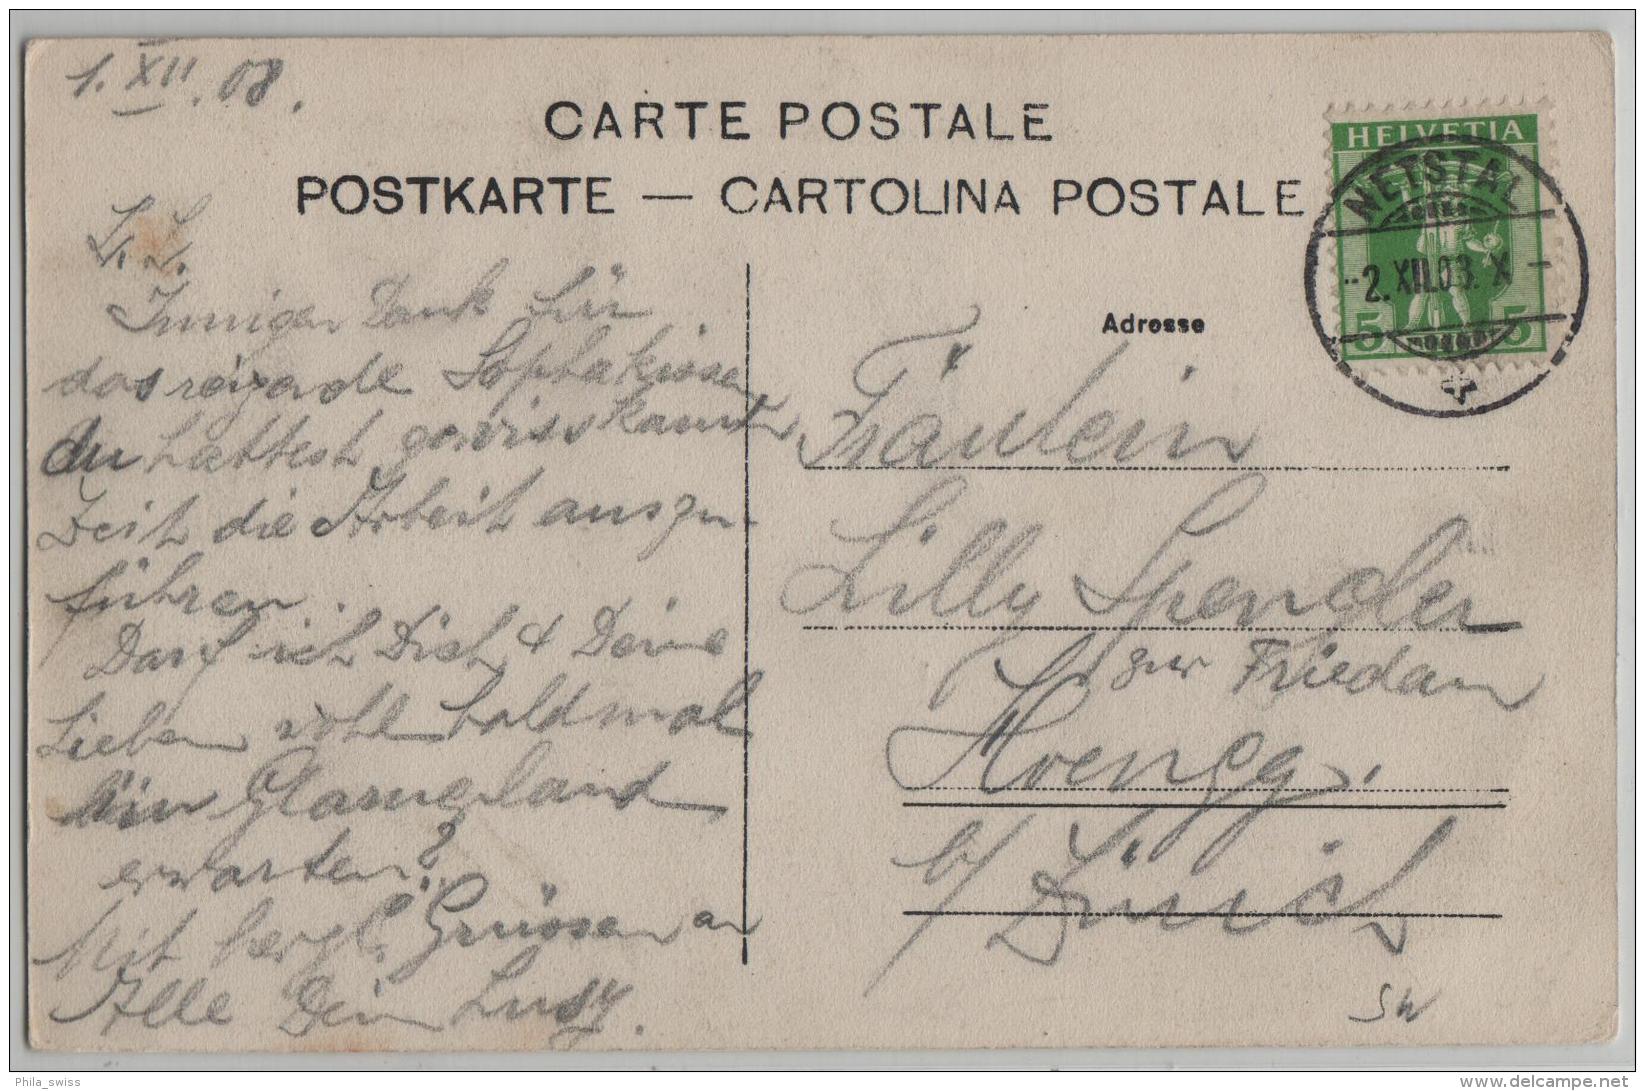 1. XII. 08.
CARTE POSTALE
POSTKARTE — CARTOLINA POSTALE
HELVETIA
NETSTAL
2. XII. 08. X
5 5
Adresse
L. L.
Innigen Dank für
das reizende Sophakissen
du hattest gewiss kaum
Zeit die Arbeit auszu-
führen
Darf ich Dich & Deine
Lieben wohl baldmal
im Glarnerland
erwarten?
Mit herzl. Grüssen an
Alle Dein Lusy.
Fräulein
Lilly Spendler
zur Friedau
Hoengg.
b/ Zürich
SW
Phila_swiss
www.delcampe.net